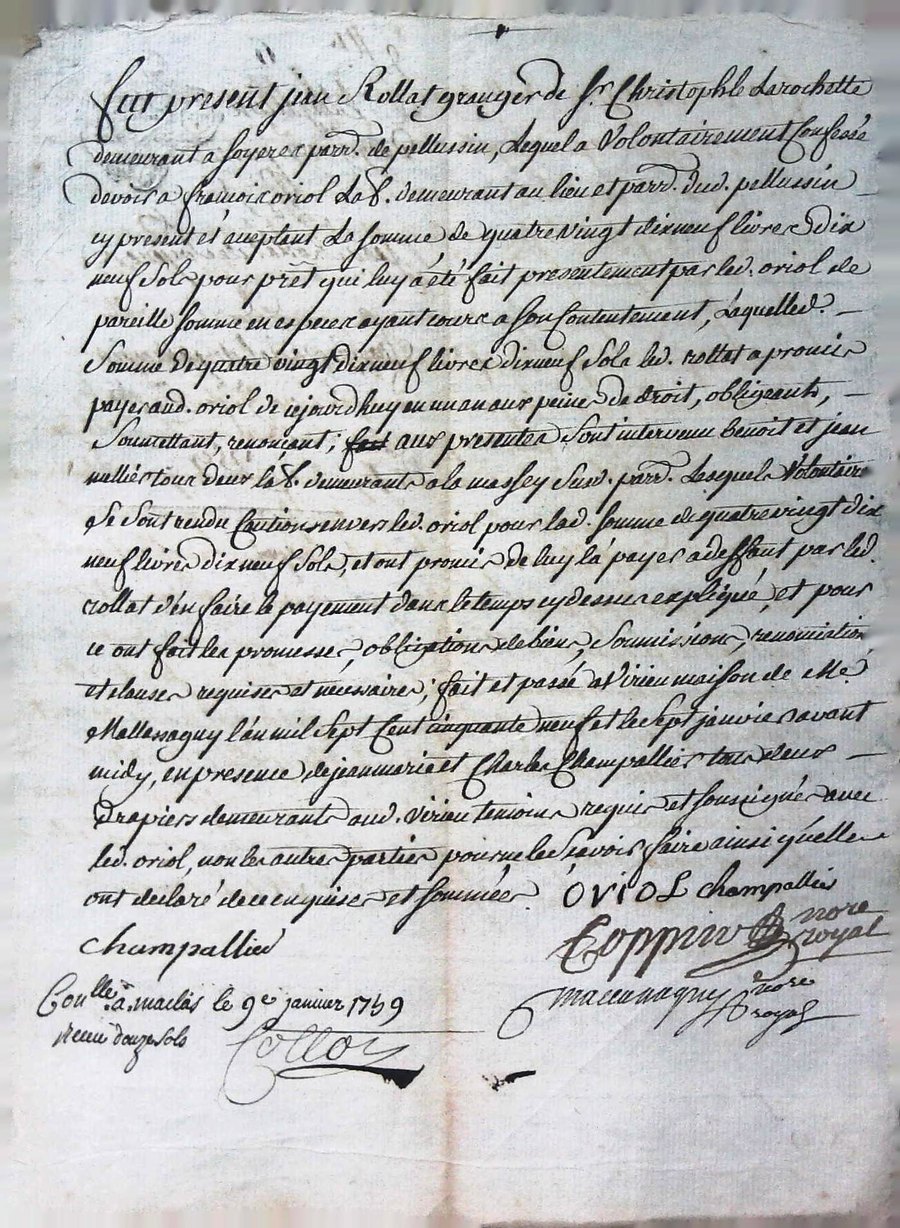 fut present jean Rollat granger de Sr. Christophle Larochette
demeurant a soyere parr. de pellussin, Lequel a Volontairement Confessé
devoir a francoix oriol Lab. demeurant au lieu et parr. dud. pellussin
cy present et aceptant La somme de quatre vingt dix neuf livres dix
neuf sols pour prêt qui luy a été fait presentement par led. oriol de
pareille somme en especes ayant cours a son Contentement, Laquelled.
Somme de quatre vingt dix neuf livres dix neuf Sols led. rollat a promis
payer aud. oriol de ce jourdhuy en un an aux peines de droit, obligeants,
Soumettant, renoncant; aux presentes sont intervenu benoit et jean
tous deux lab. demeurants a la massey Susd. parr. Lesquels Volontaire
Se Sont rendu Cautions envers led. oriol pour lad. somme de quatre vingt dix
neuf livres dix neuf sols, et ont promis de luy la payer a deffaut par led.
rollat d'en faire le payement dans le temps cy dessus expliqué, et pour
ce ont fait les promesses, obligations de biens, Soumissions, renonciations
et clauses requises et necessaires; fait et passé a Virieu maison de Me
l'an mil Sept Cent cinquante neuf et le Sept janvier avant
midy, en presence de jean marie et Charles Champallier tous deux
drapiers demeurants aud. virieu temoins requis et soussignés avec
led. oriol, non les autres parties pour ne le Savoir faire ainsi qu'elles
ont declaré de ce enquises et sommées. OVIOL champallier
champallier
Coppin nore
royal
Conllé a maclas le 9e janvier 1759
nore
royal
receu douze sols